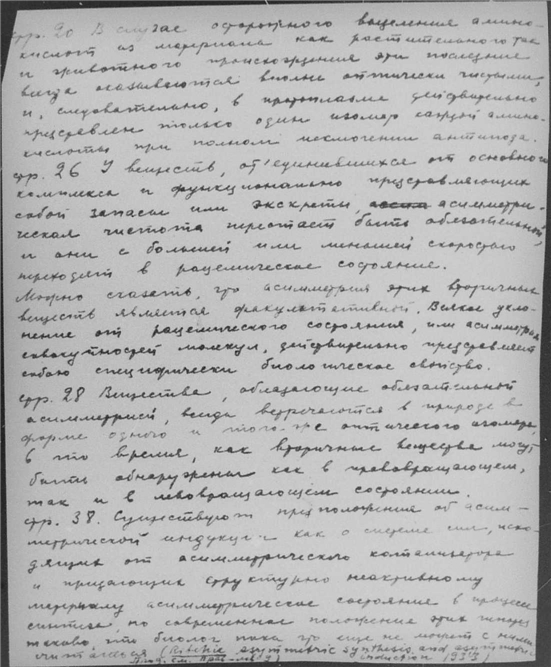 стр. 20 В случае осторожного выделения амино-
кислот из материала как растительного так
и животного происхождения эти последние
всегда оказываются вполне оптически чистыми,
и, следовательно, в протоплазме действительно
представлен только один изомер каждой амино-
кислоты при полном исключении антипода.
стр. 26 У веществ, отъединившихся от основного
комплекса и функционально представляющих
собой запасы или экскреты, асимметри-
ческая чистота перестает быть обязательной,
и они с большей или меньшей скоростью
переходят в рацемическое состояние.
Можно сказать, что асимметрия этих вторичных
веществ является факультативной. Всякое укло-
нение от рацемического состояния, или асимметрия
совокупностей молекул, действительно представляет
собою специфически биологическое свойство.
стр. 28 Вещества, обладающие обязательной
асимметрией, всегда встречаются в природе в
форме одного и того-же оптического изомера,
в то время, как вторичные вещества могут
быть обнаружены как в правовращающем,
так и в левовращающем состоянии.
стр. 38. Существуют предположения об асим-
метрической индукции как о системе сил, исхо-
дящих от асимметрического катализатора
и придающих структурно неактивному
материалу асимметрическое состояние в процессе
синтеза. Но современное положение этих теорий
таково, что биолог пока что еще не может с ними
считаться (Ritchie asymmetric synthesis and asymmetric
induction 1933)